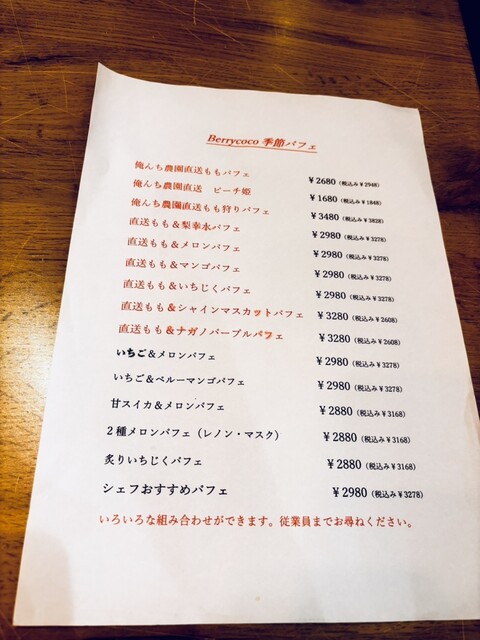 Berrycoco 季節パフェ
俺んち農園直送ももパフェ ¥2680（税込み¥2948）
俺んち農園直送 ピーチ姫 ¥1680（税込み¥1848）
俺んち農園直送もも狩りパフェ ¥3480（税込み¥3828）
直送もも＆梨幸水パフェ ¥2980（税込み¥3278）
直送もも＆メロンパフェ ¥2980（税込み¥3278）
直送もも＆マンゴパフェ ¥2980（税込み¥3278）
直送もも＆いちじくパフェ ¥2980（税込み¥3278）
直送もも＆シャインマスカットパフェ ¥3280（税込み¥2608）
直送もも＆ナガノパープルパフェ ¥3280（税込み¥2608）
いちご＆メロンパフェ ¥2980（税込み¥3278）
いちご＆ペルーマンゴパフェ ¥2980（税込み¥3278）
甘スイカ＆メロンパフェ ¥2880（税込み¥3168）
２種メロンパフェ（レノン・マスク） ¥2880（税込み¥3168）
炙りいちじくパフェ ¥2880（税込み¥3168）
シェフおすすめパフェ ¥2980（税込み¥3278）
いろいろな組み合わせができます。従業員までお尋ねください。